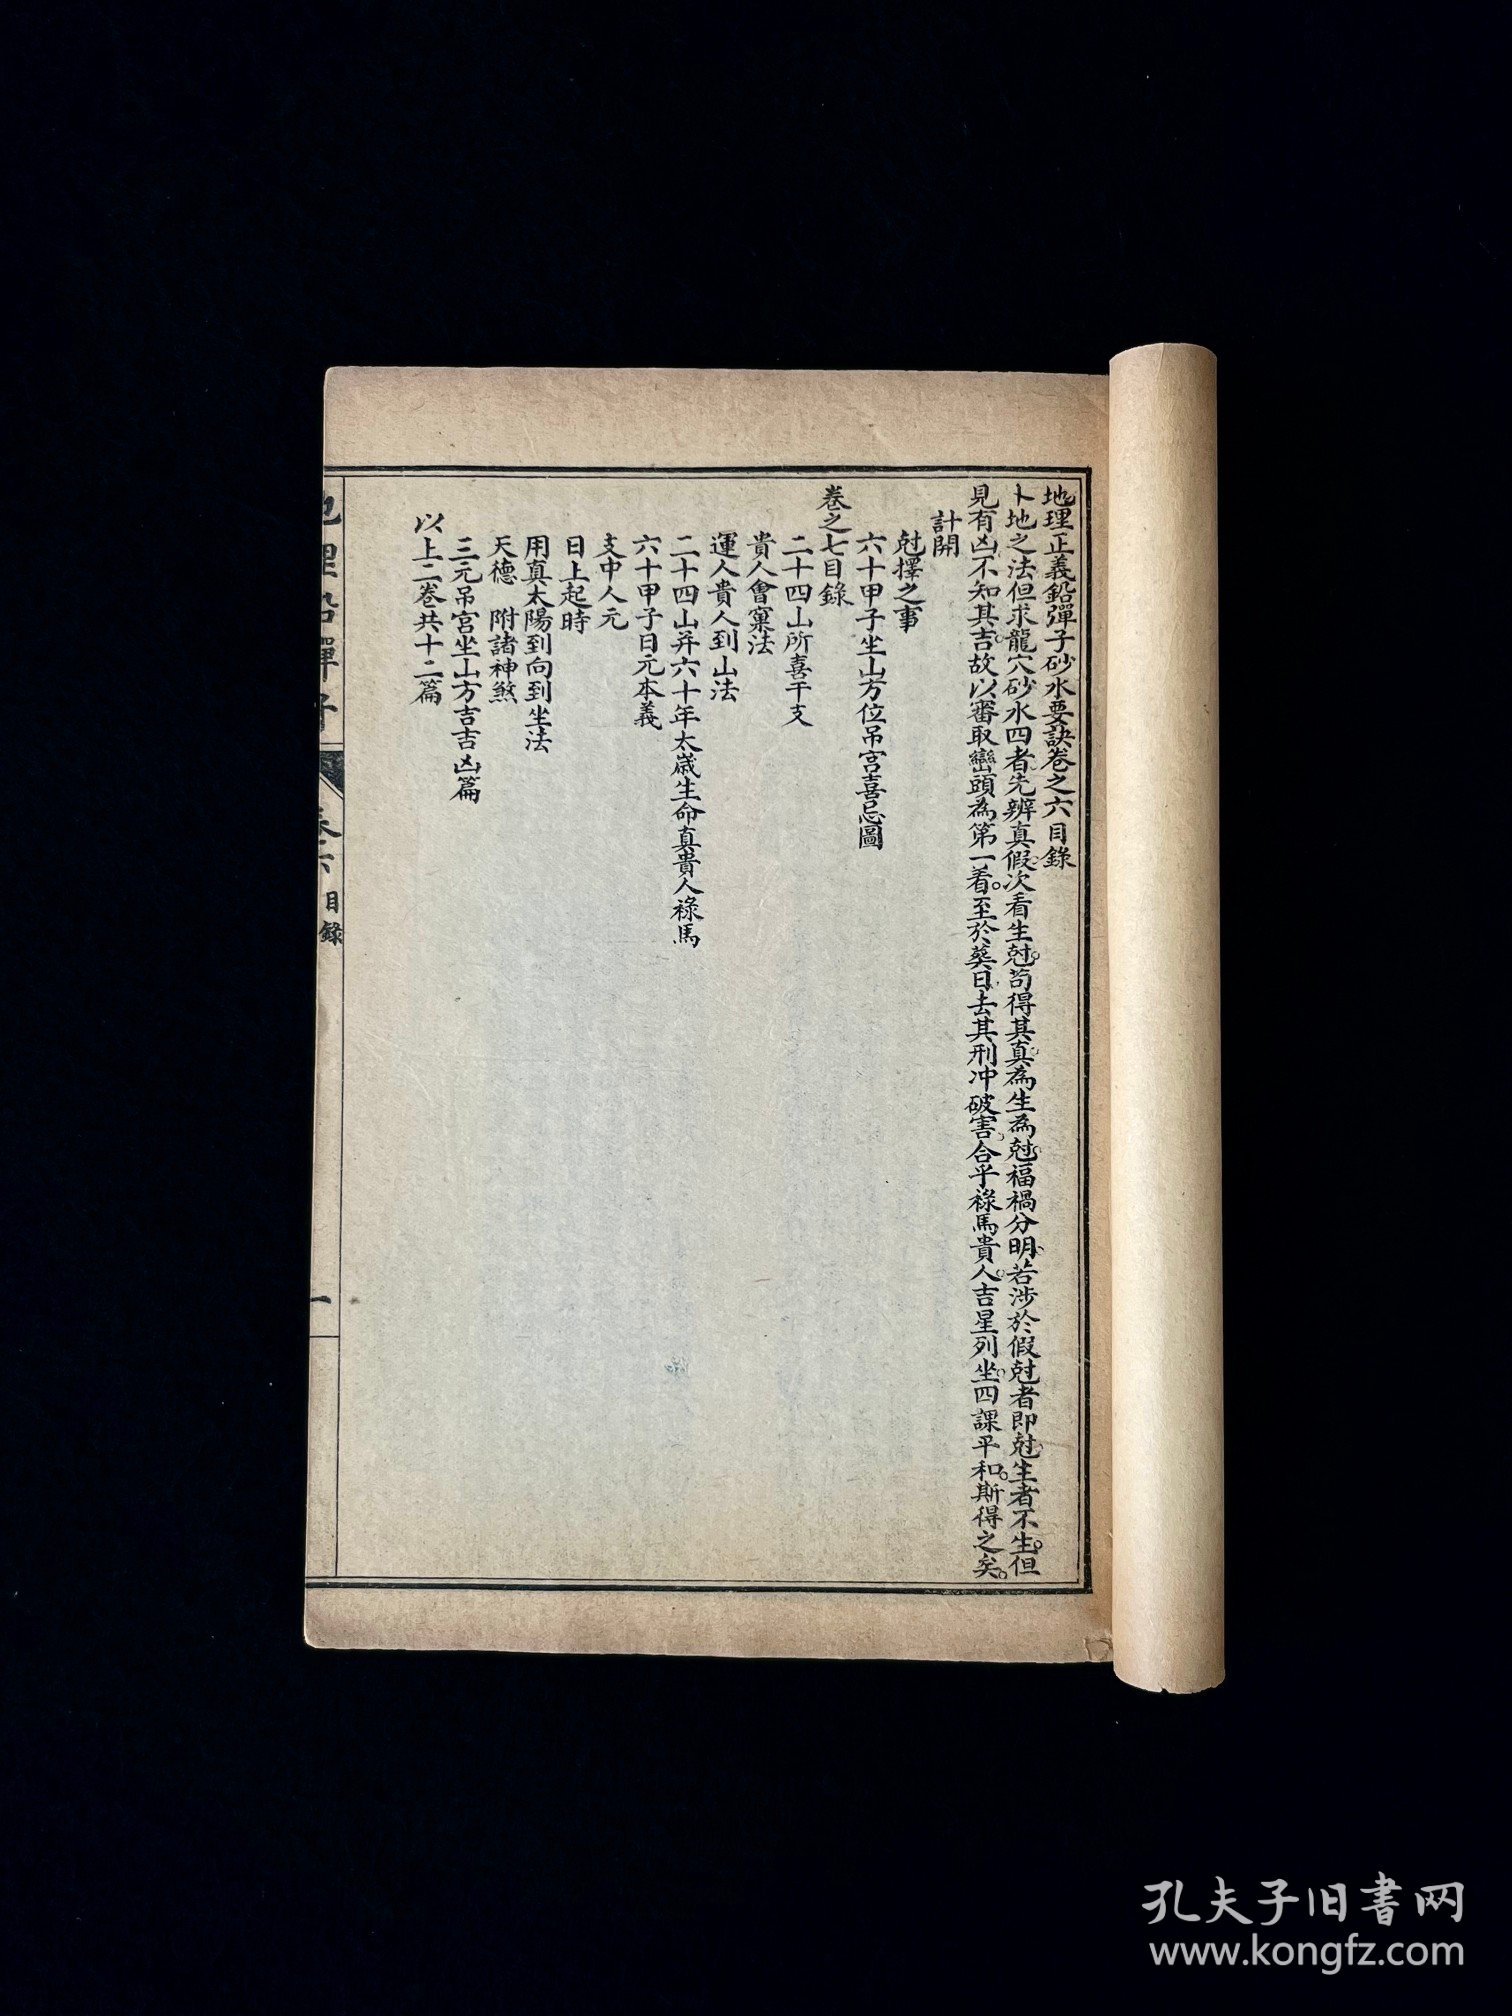 地理正義鉛彈子砂水要訣卷之六目錄
卜地之法但求龍穴砂水四者先辨真假次看生尅苟得其真為生為尅福禍分明若涉於假尅者即尅生者不生但
見有凶不知其吉故以審取巒頭為第一着至於葵日去其刑冲破害合乎祿馬貴人吉星列坐四課平和斯得之矣
計開
尅擇之事
六十甲子坐山方位吊宮喜忌圖
卷之七目錄
二十四山所喜干支
貴人會窠法
運人貴人到山法
二十四山并六十年太歲生命真貴人祿馬
六十甲子日元本義
支中人元
日上起時
用真太陽到向到坐法
天德 附諸神煞
三元吊宮坐山方吉吉凶篇
以上二卷共十二篇
地理鉛彈子
卷六 目錄
一
孔夫子旧書网
www.kongfz.com